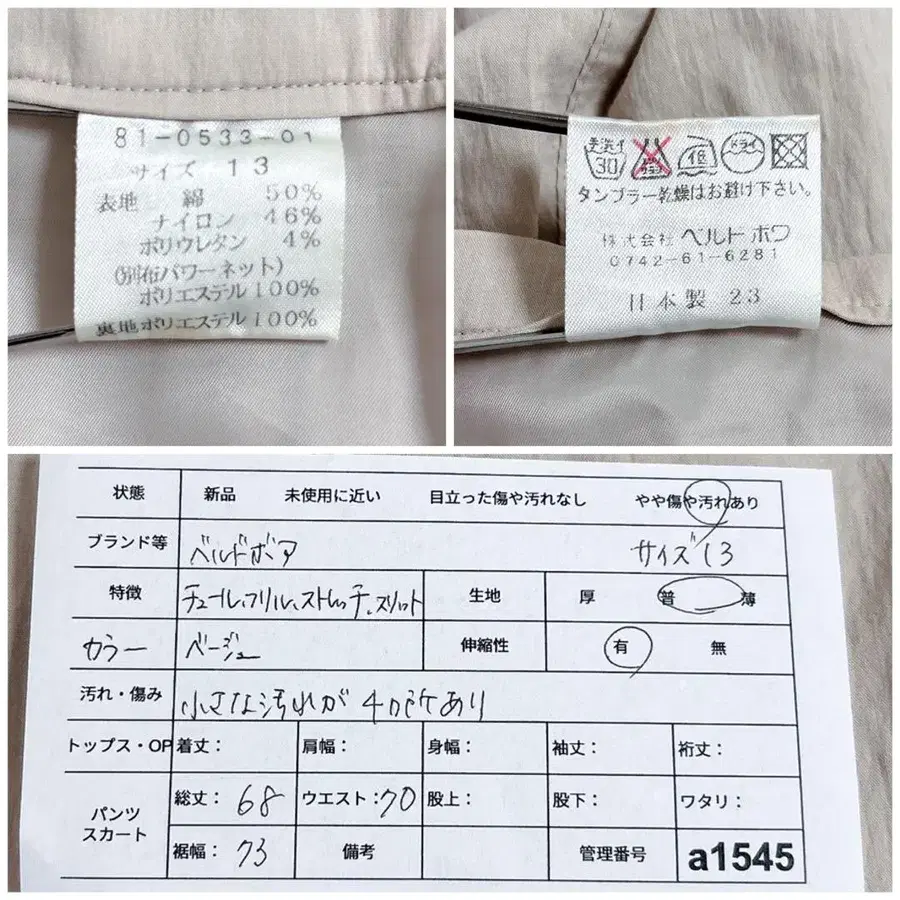 81-0533-01
サイズ 13
表地 綿 50%
ナイロン 46%
ポリウレタン 4%
(別布パワーネット)
ポリエステル100%
裏地ポリエステル100%
手洗イ 30 エンソサラシ 低 ドライ
タンブラー乾燥はお避け下さい。
株式会社 ベルドボワ
0742-61-6281
日本製 23
状態 新品 未使用に近い 目立った傷や汚れなし やや傷や汚れあり
ブランド等 ベルドボア サイズ13
特徴 チュール、フリル、ストレッチ、スリット 生地 厚 普 薄
カラー ベージュ 伸縮性 有 無
汚れ・傷み 小さな汚れが4か所あり
トップス・OP 着丈: 肩幅: 身幅: 袖丈: 裄丈:
パンツ スカート 総丈: 68 ウエスト: 70 股上: 股下: ワタリ:
裾幅: 73 備考 管理番号 a1545